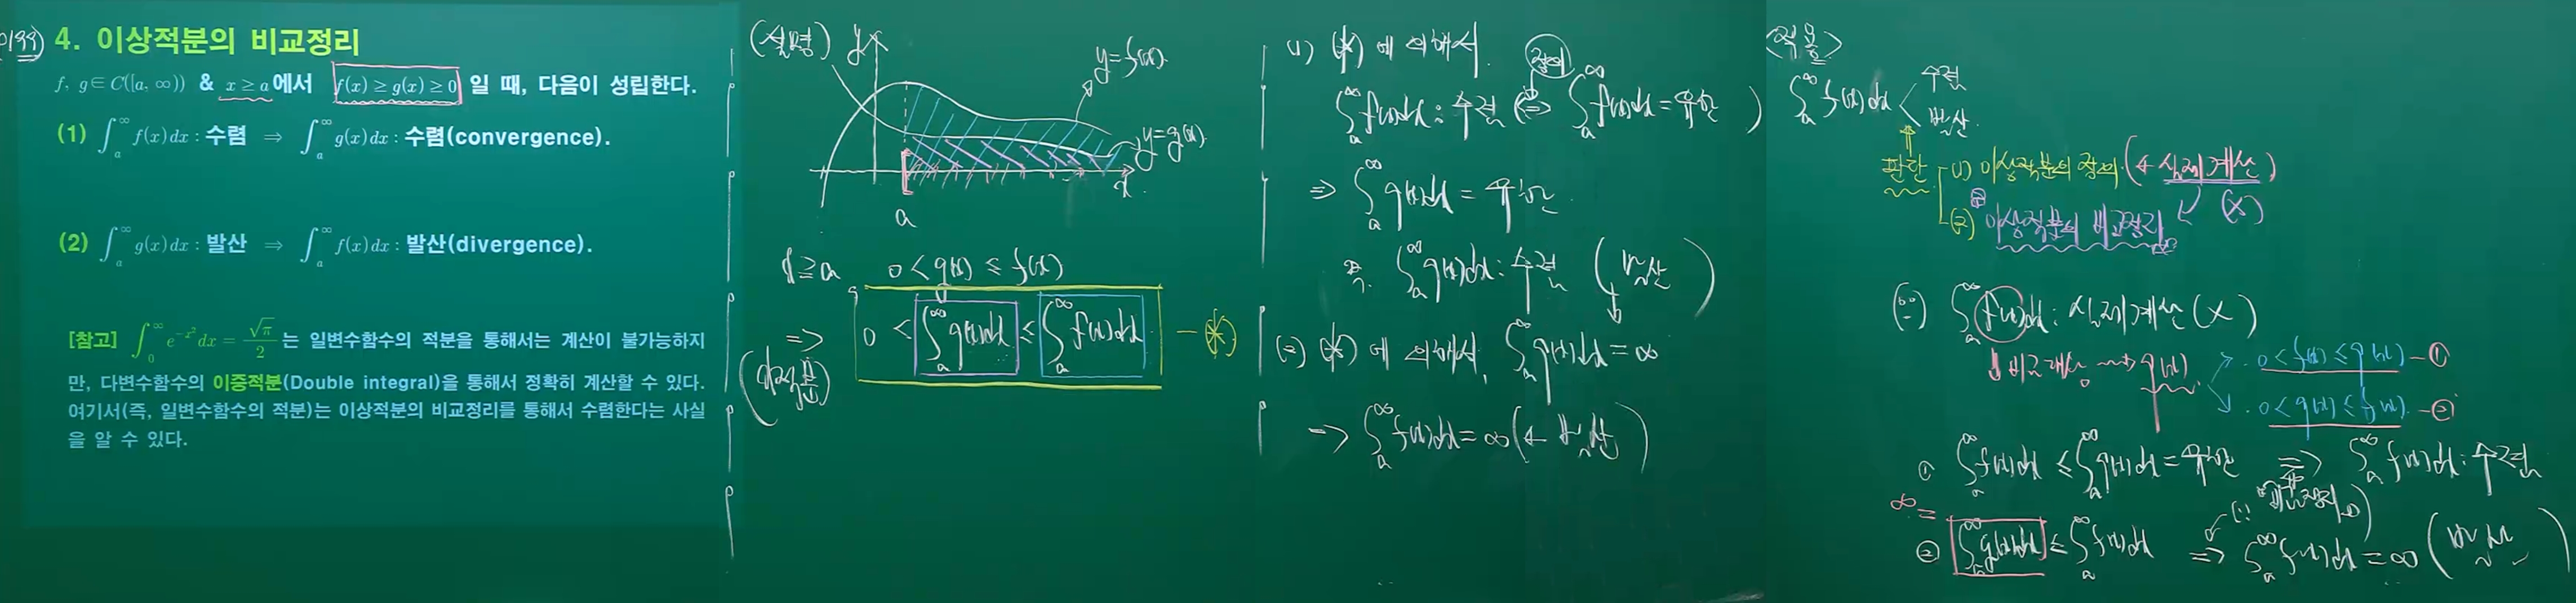 p199) 4. 이상적분의 비교정리
f, g ∈ C([a, ∞)) & x ≥ a 에서 f(x) ≥ g(x) ≥ 0 일 때, 다음이 성립한다.
(1) ∫_a^∞ f(x)dx : 수렴 ⇒ ∫_a^∞ g(x)dx : 수렴(convergence).
(2) ∫_a^∞ g(x)dx : 발산 ⇒ ∫_a^∞ f(x)dx : 발산(divergence).
[참고] ∫_0^∞ e^{-x²}dx = √π/2 는 일변수함수의 적분을 통해서는 계산이 불가능하지
만, 다변수함수의 이중적분(Double integral)을 통해서 정확히 계산할 수 있다.
여기서(즉, 일변수함수의 적분)는 이상적분의 비교정리를 통해서 수렴한다는 사실
을 알 수 있다.
(설명) y
y=f(x).
y=g(x).
x
a
x≥a 0 < g(x) ≤ f(x)
⇒ 0 < ∫_a^∞ g(x)dx ≤ ∫_a^∞ f(x)dx -(*)
(1) (*)에 의해서 정의
∫_a^∞ f(x)dx : 수렴 (⇔ ∫_a^∞ f(x)dx = 유한)
⇒ ∫_a^∞ g(x)dx = 유한
즉. ∫_a^∞ g(x)dx : 수렴 (발산)
(2) (*)에 의해서, ∫_a^∞ g(x)dx = ∞
⇒ ∫_a^∞ f(x)dx = ∞ (← 발산)
<적용>
∫_a^∞ f(x)dx < 수렴
발산.
판단 (1) 이상적분의 정의 (← 실제계산)
(2) 이상적분의 비교정리 (x)
∫_a^∞ f(x)dx : 실제계산(x)
비교대상 → g(x)
0 < f(x) ≤ g(x) -①
0 < g(x) ≤ f(x) -②
① ∫_a^∞ f(x)dx ≤ ∫_a^∞ g(x)dx = 유한 ⇒ ∫_a^∞ f(x)dx : 수렴
(∵ 비교정리)
② ∞ = ∫_a^∞ g(x)dx ≤ ∫_a^∞ f(x)dx ⇒ ∫_a^∞ f(x)dx = ∞ (발산)